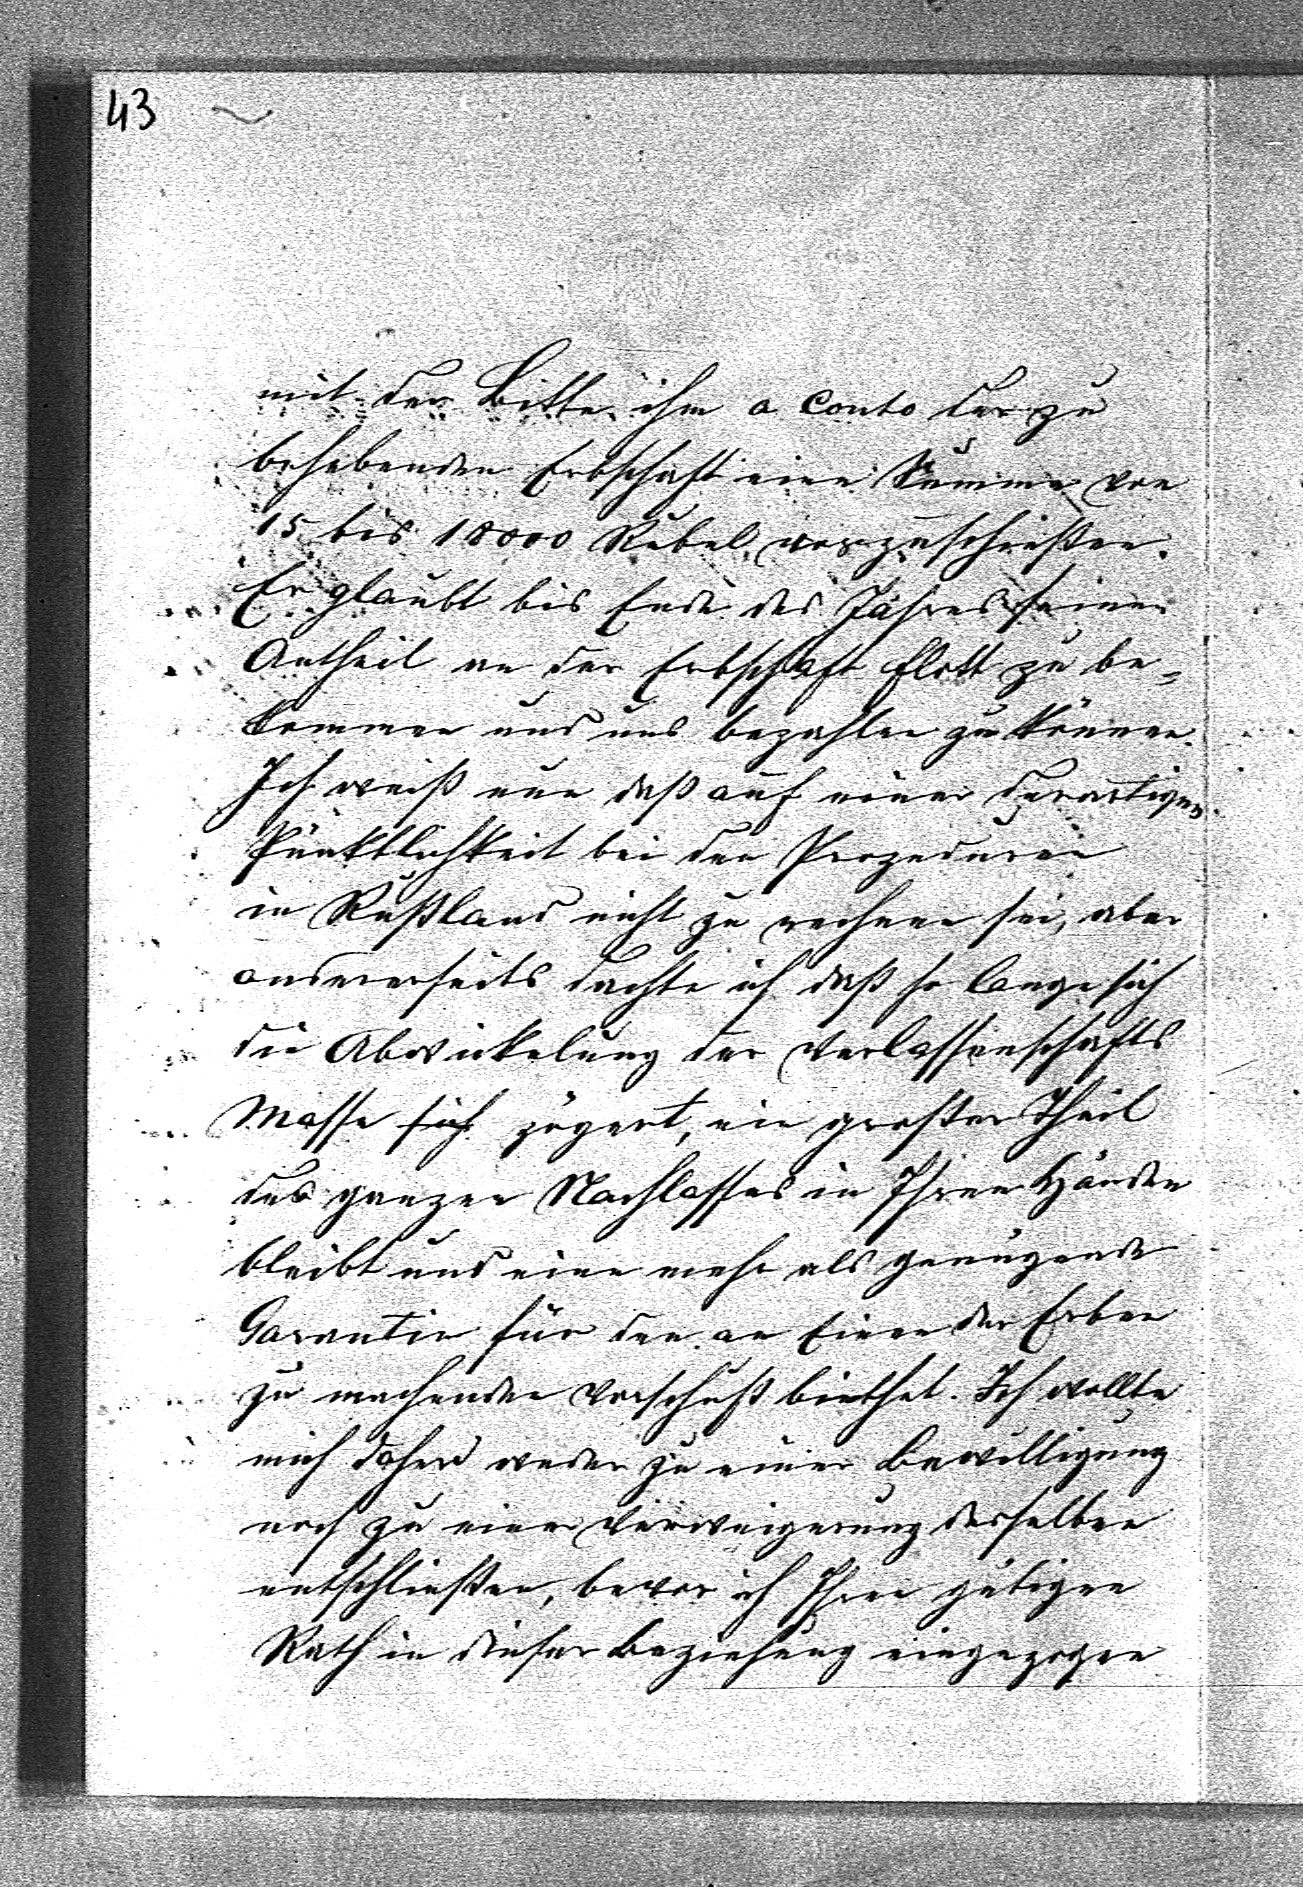 43
mit der Bitte ihm a Conto der zu
behebenden Erbschaft eine Summe von
15 bis 18000 Rubel vorzuschießen.
Er glaubt bis Ende des Jahres seinen
Antheil an der Erbschaft flott zu be-
kommen und uns bezahlen zu können.
Ich weiß nun daß auf einer derartigen
Pünktlichkeit bei den Prozeduren
in Rußland nicht zu rechnen sei, aber
andererseits dachte ich daß so lange sich
die Abwickelung der Verlassenschafts
Masse sich zögert, ein großer Theil
des ganzen Nachlasses in Ihren Händen
bleibt und eine mehr als genügende
Garantie für den an Einen der Erben
zu machenden Vorschuß biethet. Ich wollte
mich daher weder zu einer Bewilligung
noch zu einer Verweigerung desselben
entschließen, bevor ich Ihren gütigen
Rath in dieser Beziehung eingezogen